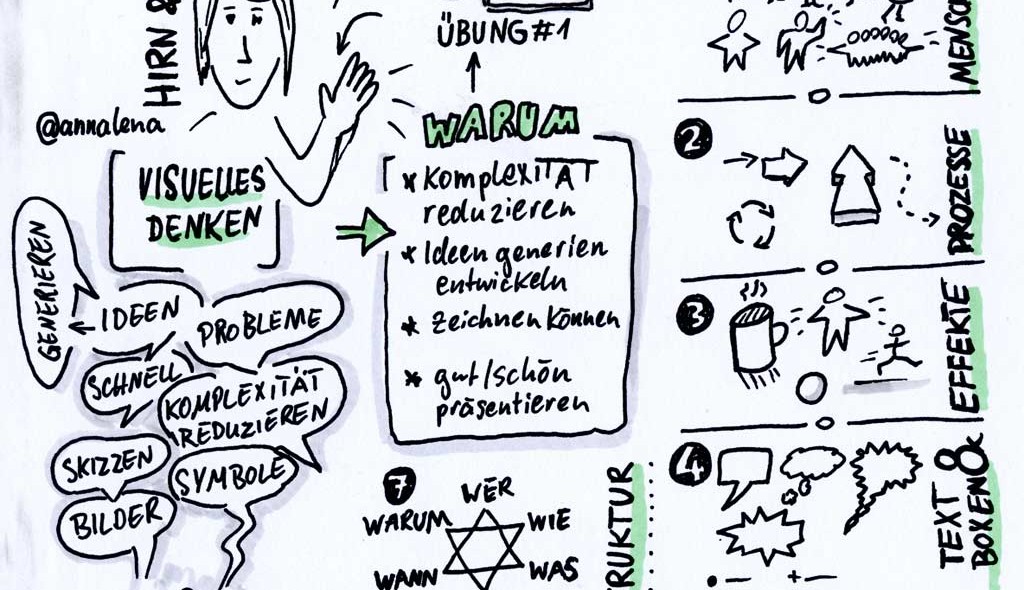 HIRN &
@annalena
VISUELLES
DENKEN
GENERIEREN
IDEEN
PROBLEME
SCHNELL
KOMPLEXITÄT
REDUZIEREN
SKIZZEN
SYMBOLE
BILDER
ÜBUNG #1
WARUM
* KomplexITÄT
reduzieren
* Ideen generien
entwickeln
* zeichnen können
* gut/schön
präsentieren
7
WER
WARUM
WIE
WANN
WAS
RUKTUR
MENSC
2
PROZESSE
3
EFFEKTE
4
TEXT &
BOXEN